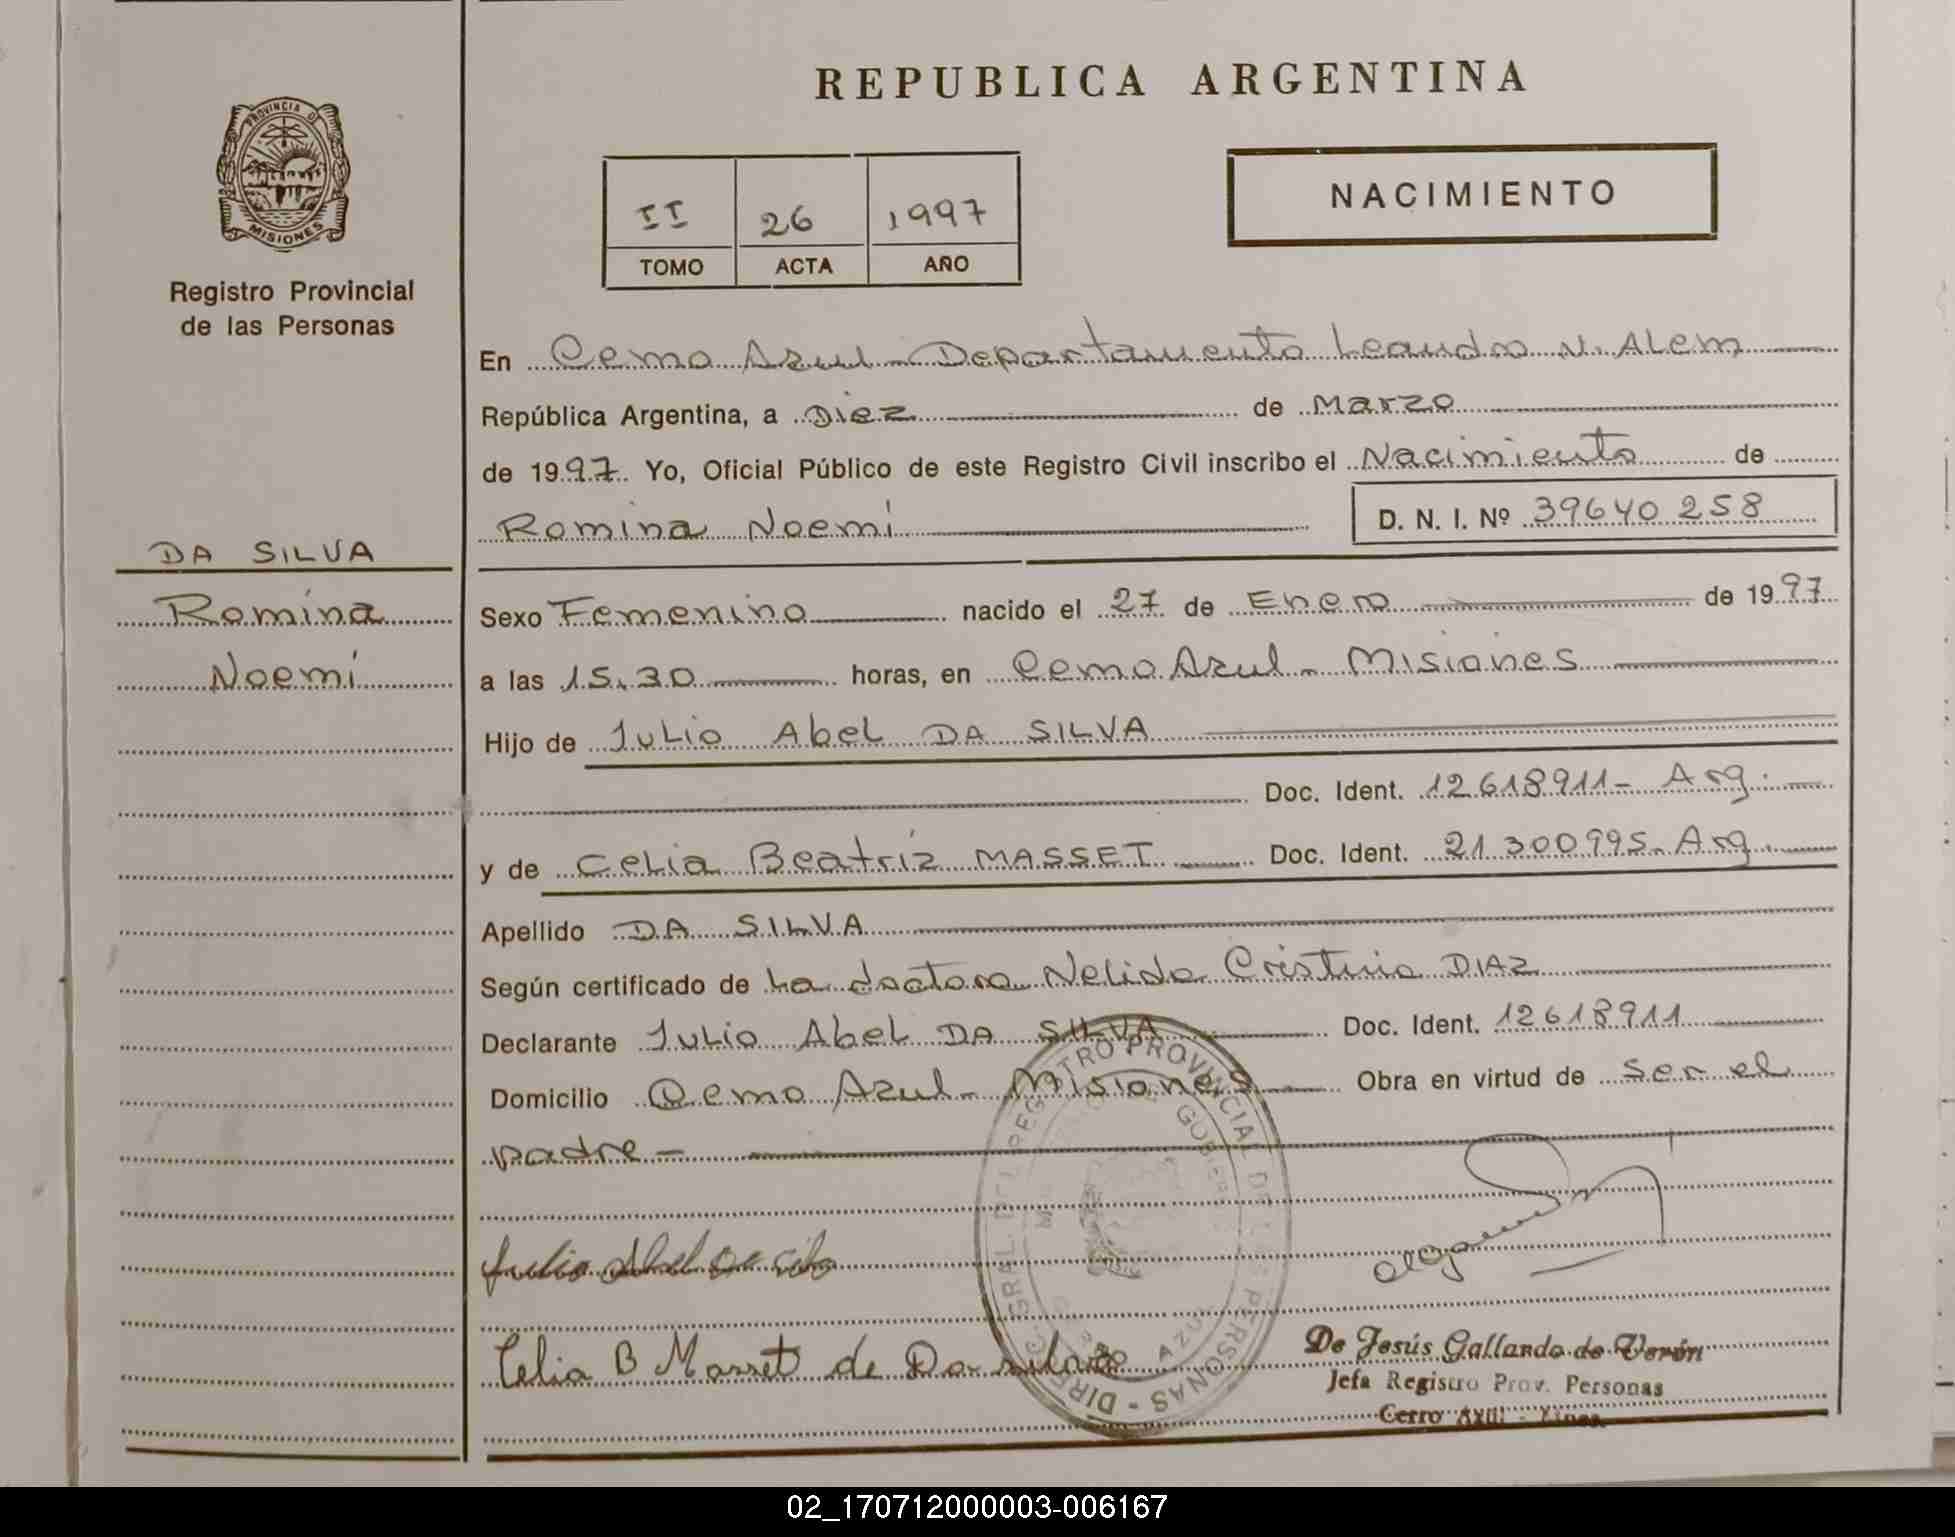 REPUBLICA ARGENTINA
PROVINCIA DE
MISIONES
Registro Provincial
de las Personas
II 26 1997
TOMO ACTA AÑO
NACIMIENTO
En Cerro Azul - Departamento Leandro N. Alem
República Argentina, a Diez de Marzo
de 1997 Yo, Oficial Público de este Registro Civil inscribo el Nacimiento de
Romina Noemí D. N. I. Nº 39640258
DA SILVA
Romina
Noemí
Sexo Femenino nacido el 27 de Enero de 1997
a las 15.30 horas, en Cerro Azul - Misiones
Hijo de Julio Abel DA SILVA
Doc. Ident. 12618911- Arg.
y de Celia Beatríz MASSET Doc. Ident. 21.300995- Arg.
Apellido DA SILVA
Según certificado de La doctora Nelida Cristina DIAZ
Declarante Julio Abel DA SILVA Doc. Ident. 12618911
Domicilio Cerro Azul - Misiones Obra en virtud de ser el
padre -
Julio Abel Da Silva
Celia B Masset de Da Silva
DIREC. GRAL. DEL REGISTRO PROVINCIAL DE LAS PERSONAS -
De Jesús Gallardo de Verón
Jefa Registro Prov. Personas
Cerro Azul -
02_170712000003-006167